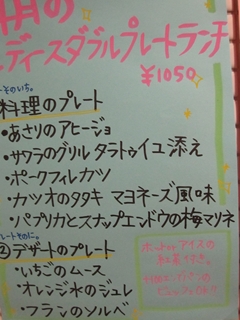 月の
レディースダブルプレートランチ
¥1050
その1。
料理のプレート
・あさりのアヒージョ
・サワラのグリル タラトゥイユ添え
・ポークフィレカツ
・カツオのタタキ マヨネーズ風味
・パプリカとスナップエンドウの梅マリネ
プレートその2。
②デザートのプレート
・いちごのムース
・オレンジ水のジュレ
・フランのソルベ
ホットorアイスの
紅茶付き。